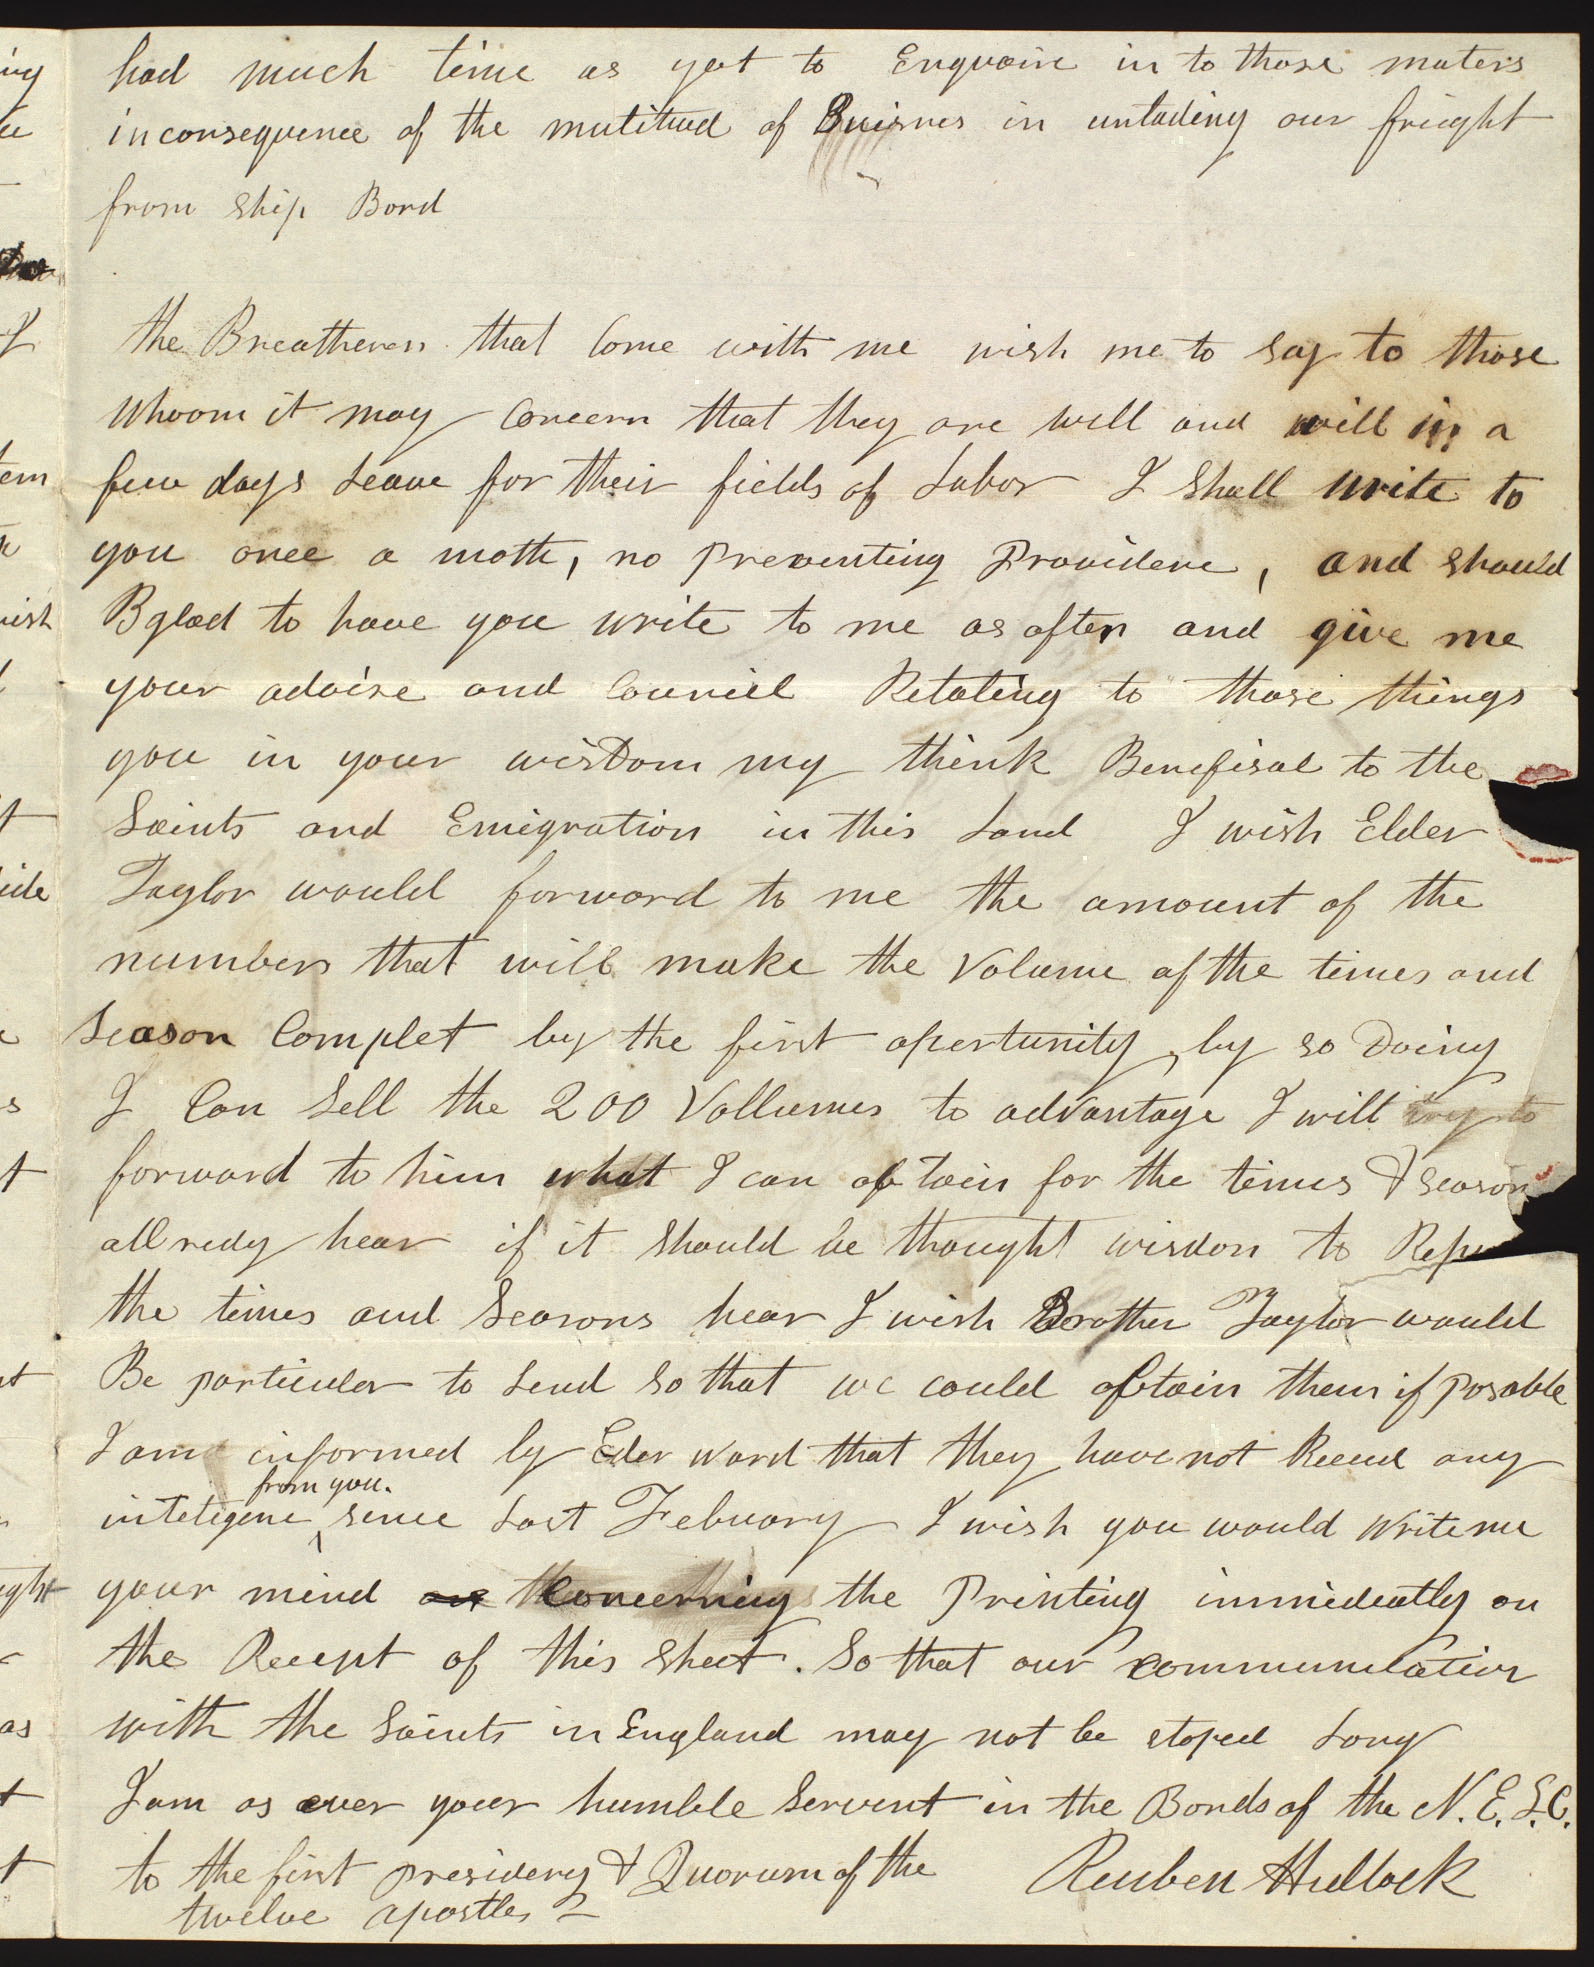 had much time as yet to Enquire in to those maters
inconsequence of the multitud of Buisnes in unlading our frieght
from Ship Bord
the Breatheren that Come with me wish me to say to those
Whoom it may Concern that they are well and will in a
few days Leave for their fields of Labor I Shall write to
you once a moth, no preventing Providence, and should
B glad to have you write to me as often and give me
your advise and Council Relating to those things
you in your wisdom my think Benefisal to the
Saints and Emigration in this Land I wish Elder
Taylor would forward to me the amount of the
numbers that will make the Volume of the times and
Season Complet by the first opertunity, by so Doing
I Can Sell the 200 Vollumes to advantage I will try to
forward to him what I can obtain for the times & season
all redy hear if it Should be thought wisdon to
the times and Seasons hear I wish Brother Taylor would
Be particuler to send so that we could obtain them if posable
I am informed by Elder Ward that they have not Receved any
from you.
inteligence since Last Febuary I wish you would Write me
your mind Concerning the Printing immideatly on
the Recept of this Sheet. So that our communication
with the Saints in England may not be stoped Long
I am as ever your humble Servent in the Bonds of the N. E. & C.
to the first presidency & Quorum of the Reuben Hedlock
twelve apostles